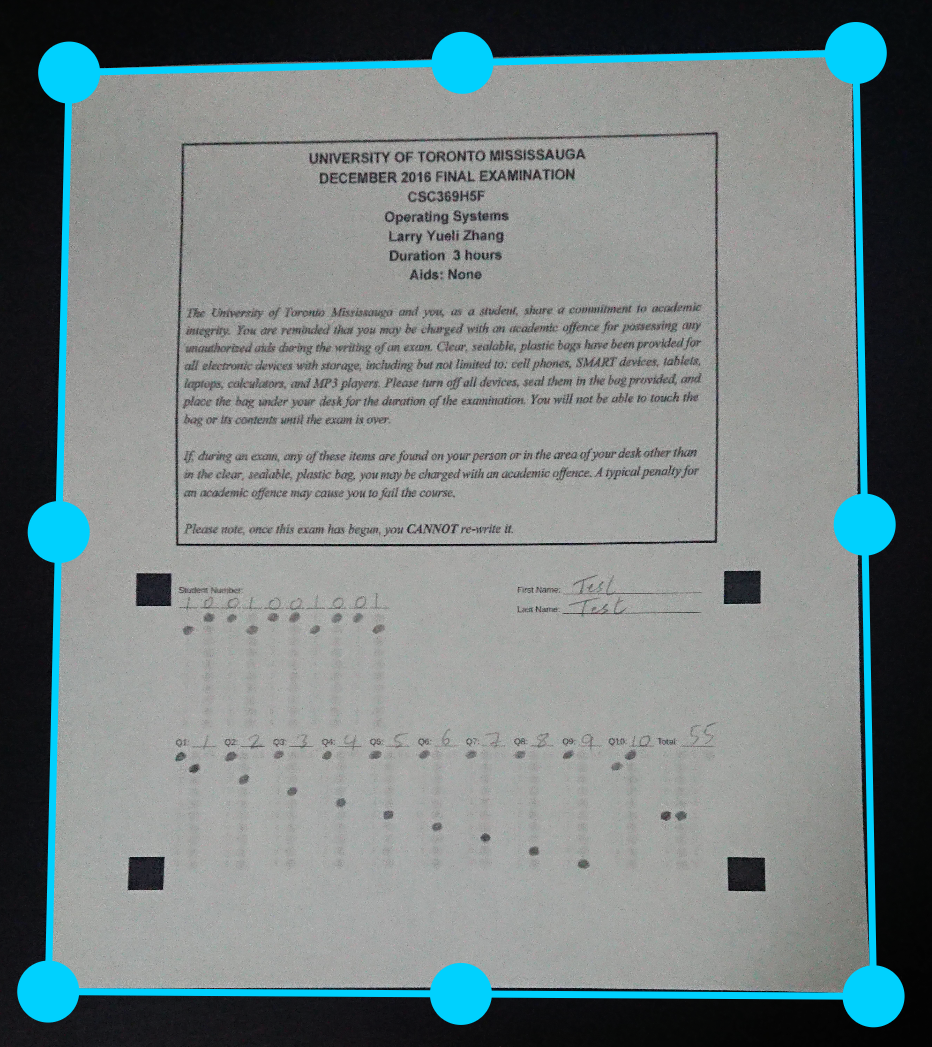 UNIVERSITY OF TORONTO MISSISSAUGA
DECEMBER 2016 FINAL EXAMINATION
CSC369H5F
Operating Systems
Larry Yueli Zhang
Duration 3 hours
Aids: None
The University of Toronto Mississauga and you, as a student, share a commitment to academic
integrity. You are reminded that you may be charged with an academic offence for possessing any
unauthorized aids during the writing of an exam. Clear, sealable, plastic bags have been provided for
all electronic devices with storage, including but not limited to: cell phones, SMART devices, tablets,
laptops, calculators, and MP3 players. Please turn off all devices, seal them in the bag provided, and
place the bag under your desk for the duration of the examination. You will not be able to touch the
bag or its contents until the exam is over.
If, during an exam, any of these items are found on your person or in the area of your desk other than
in the clear, sealable, plastic bag, you may be charged with an academic offence. A typical penalty for
an academic offence may cause you to fail the course.
Please note, once this exam has begun, you CANNOT re-write it.
Student Number:
1 0 0 1 0 0 1 0 0 1
First Name: Test
Last Name: Test
Q1: 1 Q2: 2 Q3: 3 Q4: 4 Q5: 5 Q6: 6 Q7: 7 Q8: 8 Q9: 9 Q10: 10 Total: 55